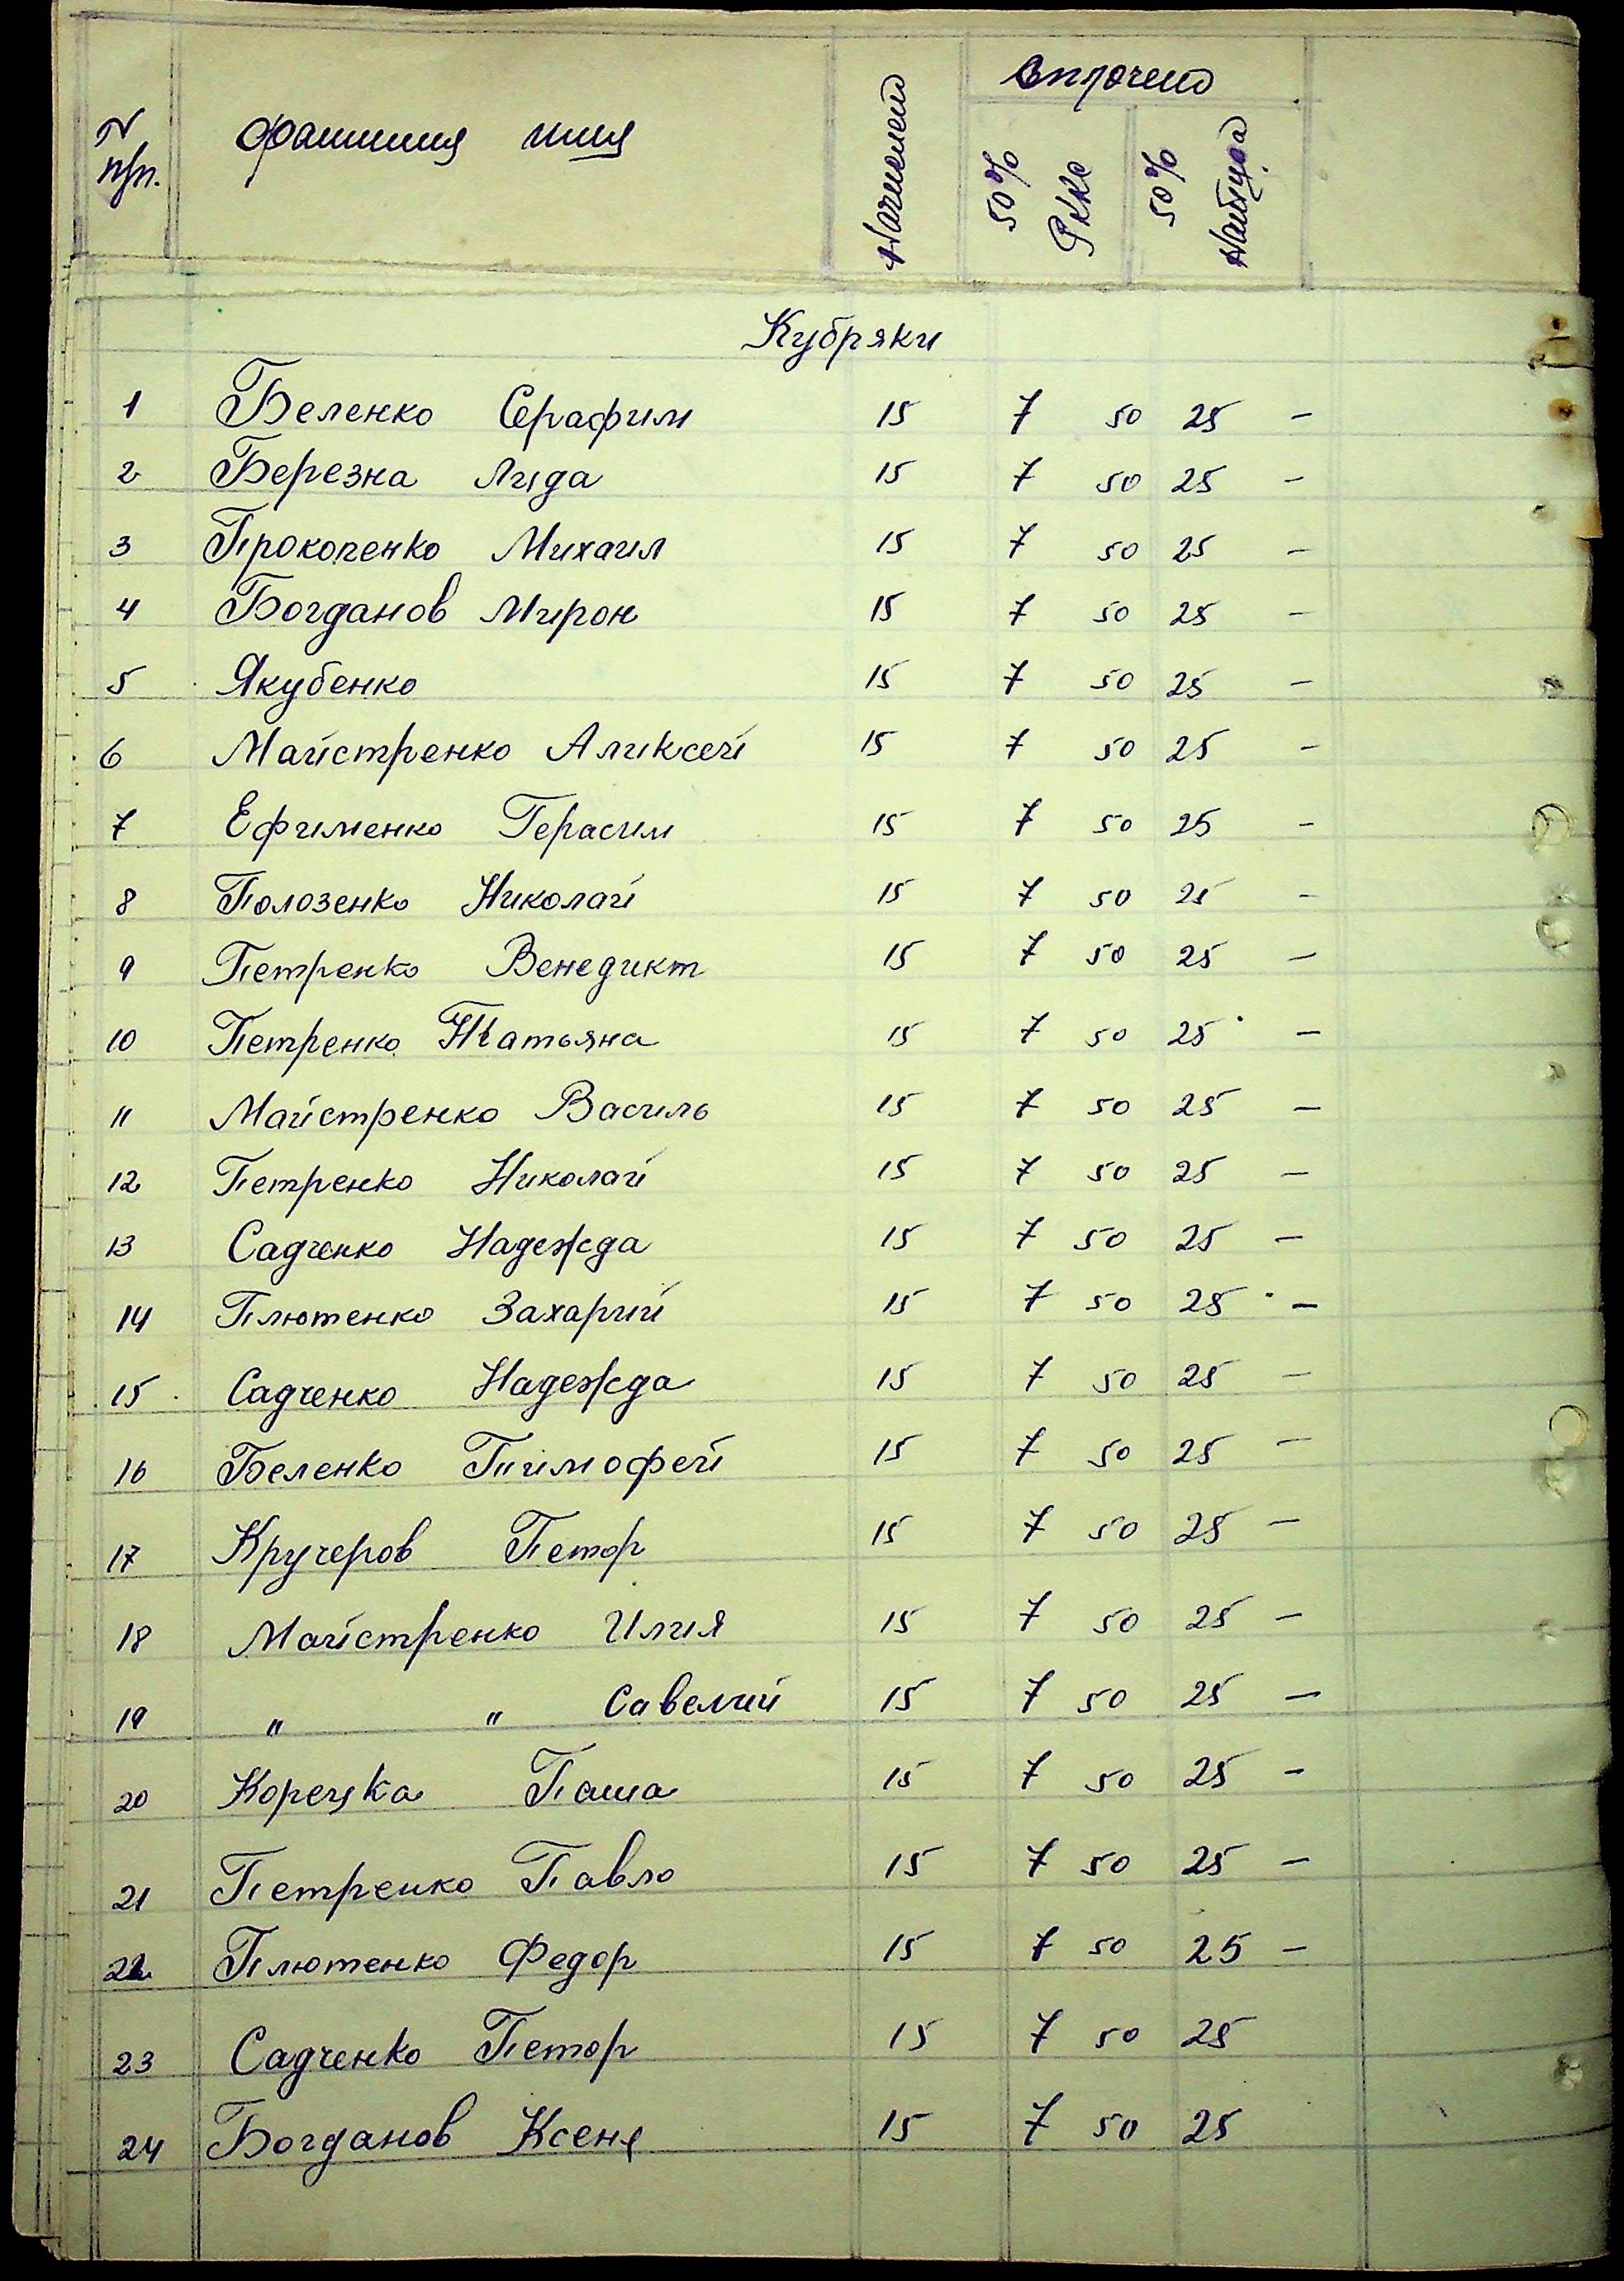 N п/п. фамилия имя Начислено Оплочено
50% РККО 50% Наптура
Кубряки
1 Беленко Серафим 15 7 50 25 –
2 Березна Лида 15 7 50 25 –
3 Прокопенко Михаил 15 7 50 25 –
4 Богданов Мирон 15 7 50 25 –
5 Якубенко 15 7 50 25 –
6 Майстренко Аликсей 15 7 50 25 –
7 Ефименко Герасим 15 7 50 25 –
8 Полозенко Николай 15 7 50 25 –
9 Петренко Венедикт 15 7 50 25 –
10 Петренко Татьяна 15 7 50 25 –
11 Майстренко Василь 15 7 50 25 –
12 Петренко Николай 15 7 50 25 –
13 Садченко Надежда 15 7 50 25 –
14 Плютенко Захарий 15 7 50 25 –
15 Садченко Надежда 15 7 50 25 –
16 Беленко Тимофей 15 7 50 25 –
17 Кручеров Петор 15 7 50 25 –
18 Майстренко Илия 15 7 50 25 –
19 " " Савелий 15 7 50 25 –
20 Корецка Паша 15 7 50 25 –
21 Петренко Павло 15 7 50 25 –
22 Плютенко Федор 15 7 50 25 –
23 Садченко Петор 15 7 50 25
24 Богданов Ксеня 15 7 50 25